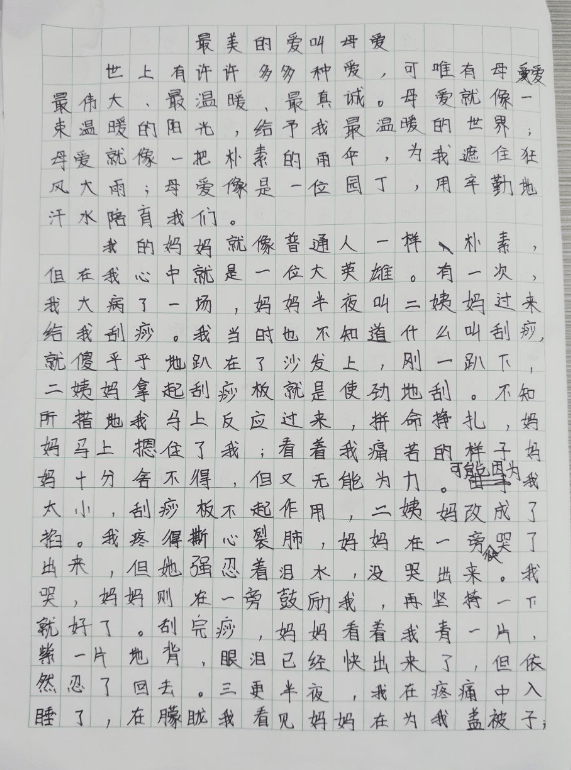 最美的爱叫母爱
世上有许许多多种爱，可唯有母爱
最伟大、最温暖、最真诚。母爱就像一
束温暖的阳光，给予我最温暖的世界；
母爱就像一把朴素的雨伞，为我遮住狂
风大雨；母爱像是一位园丁，用辛勤地
汗水陪育我们。
我的妈妈就像普通人一样、朴素，
但在我心中就是一位大英雄。有一次，
我大病了一场，妈妈半夜叫二姨妈过来
给我刮痧。我当时也不知道什么叫刮痧，
就傻乎乎地趴在了沙发上，刚一趴下，
二姨妈拿起刮痧板就是使劲地刮。不知
所措地我马上反应过来，拼命挣扎，妈
妈马上摁住了我；看着我痛苦的样子妈
妈十分舍不得，但又无能为力。可能因为我
太小，刮痧板不起作用，二姨妈改成了
掐。我疼得撕心裂肺，妈妈在一旁哭了
出来，但她强忍着泪水，没哭出来。我
哭，妈妈则在一旁鼓励我，再坚持一下
就好了。刮完痧，妈妈看着我青一片，
紫一片地背，眼泪已经快出来了，但依
然忍了回去。三更半夜，我在疼痛中入
睡了，在朦胧我看见妈妈在为我盖被子；